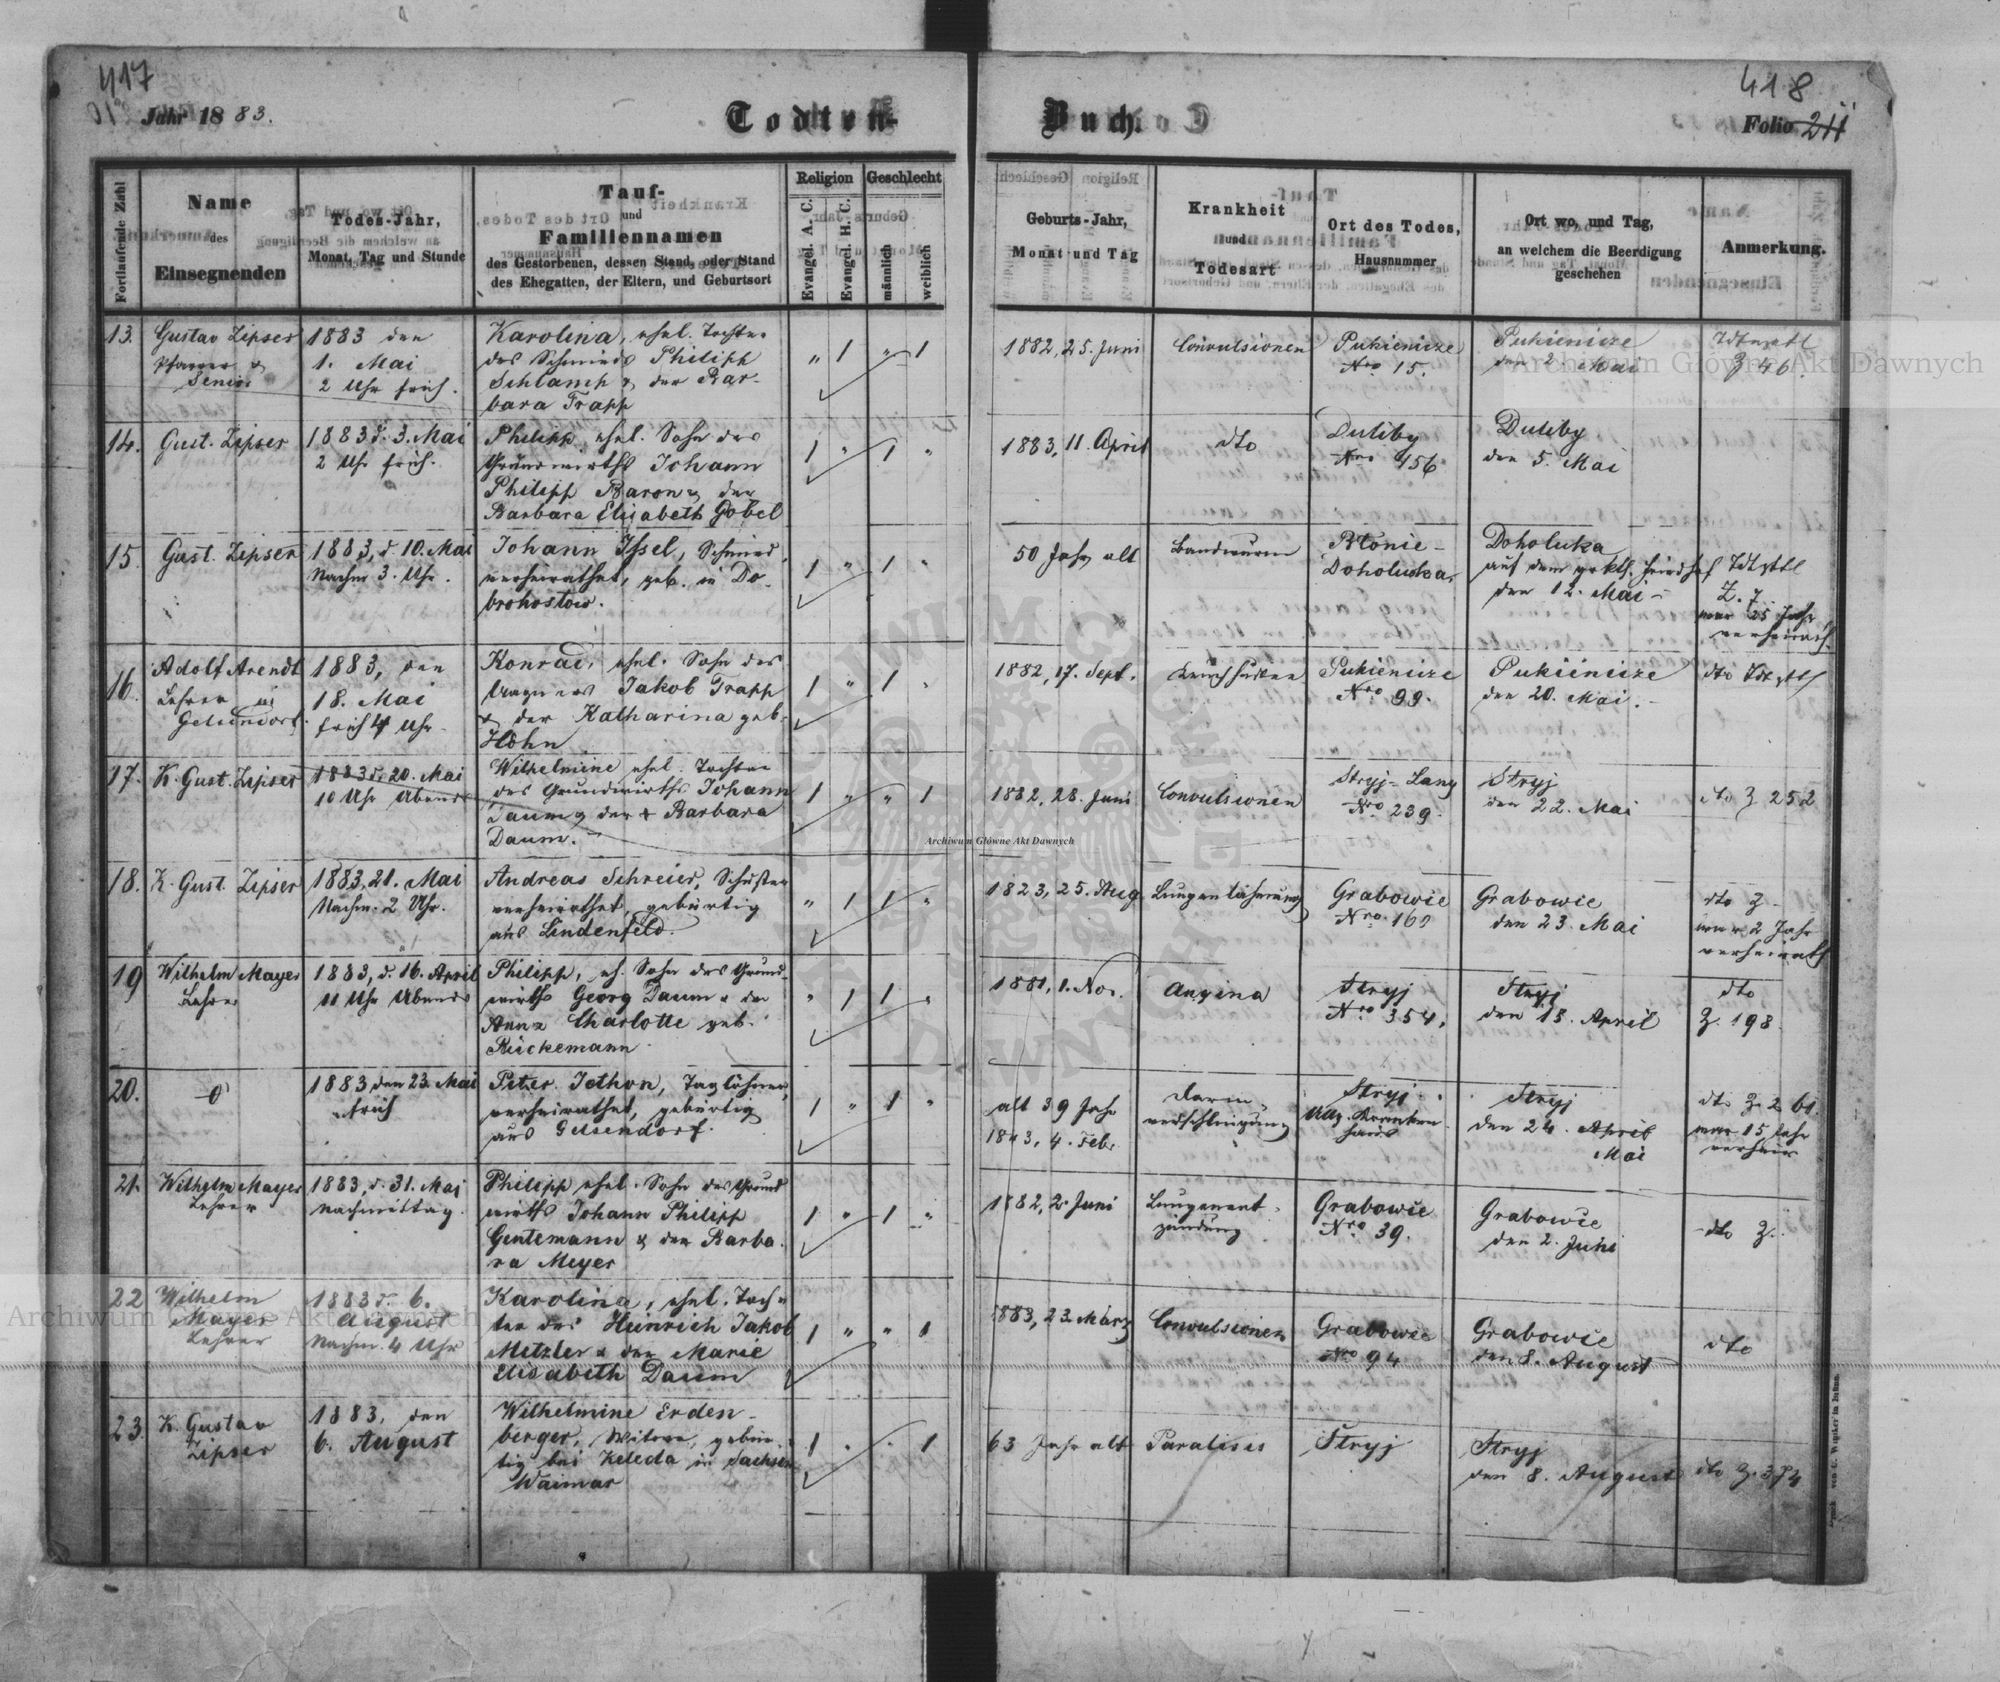 417
418
Jahr 1883.
Todten-
Buch.
Folio 211
Fortlaufende Zahl
Name
des
Einsegnenden
Todes-Jahr,
Monat, Tag und Stunde
Tauf-
und
Familiennamen
des Gestorbenen, dessen Stand, oder Stand
des Ehegatten, der Eltern, und Geburtsort
Religion
Evangel. A. C.
Evangel. H. C.
Geschlecht
männlich
weiblich
Geburts-Jahr,
Monat und Tag
Krankheit
und
Todesart
Ort des Todes,
Hausnummer
Ort wo, und Tag,
an welchem die Beerdigung
geschehen
Anmerkung.
13.
Gustav Zipser
Pfarrer &
Senior
1883 den
1. Mai
2 Uhr früh.
Karolina, ehel. Tochter
des Schmieds Philipp
Schlamp & der Bar-
bara Trapp
" 1 " 1
1882, 25. Juni
Convulsionen
Pukienicze
Nro 15.
Pukienicze
den 2. Mai
Z 46.
14.
Gust. Zipser
1883 d. 3. Mai
2 Uhr früh.
Philipp, ehel. Sohn des
Grundwirths Johann
Philipp Baron & der
Barbara Elisabeth Göbel
1 " 1 "
1883, 11. April
dto
Duliby
Nro 156
Duliby
den 5. Mai
15.
Gust. Zipser
1883, d. 10. Mai
Nachm 3. Uhr.
Johann Issel, Schmied,
verheirathet, geb. in Do-
brohostow.
1 " 1 "
50 Jahr alt
Bandwurm
Blonie-
Doholuka,
Doholuka
auf dem gr kth. Friedhof
den 12. Mai
Z. 7.
war 25 Jahr
verheirath.
16.
Adolf Arendt
Lehrer in
Gelsendorf
1883, den
18. Mai
früh 4 Uhr
Konrad, ehel. Sohn des
Wagners Jakob Trapp
& der Katharina geb.
Höhn
1 " 1 "
1882, 17. Sept.
Keuchhusten
Pukienicze
Nro 99.
Pukienicze
den 20. Mai.
dto
17.
K. Gust. Zipser
1883 d. 20. Mai
10 Uhr Abends
Wilhelmine ehel. Tochter
des Grundwirths Johann
Daum & der + Barbara
Daum.
1 " " 1
1882, 28. Juni
Convulsionen
Stryj-Lany
Nro 239.
Stryj
den 22. Mai
dto Z 252
18.
K. Gust. Zipser
1883, 21. Mai
Nachm. 2 Uhr.
Andreas Schreier, Schuster
verheirathet, gebürtig
aus Lindenfeld.
" 1 1 "
1823, 25. Aug
Lungenlähmung
Grabowie
Nro. 160
Grabowie
den 23. Mai
dto Z
war 2 Jahr
verheirath
19
Wilhelm Mayer
Lehrer
1883, d. 16. April
11 Uhr Abends
Philipp, eh. Sohn des Grund-
wirths Georg Daum & der
Anna Charlotte geb.
Rückemann
" 1 1 "
1881, 1. Nov.
Angina
Stryj
Nro 354.
Stryj
den 18. April
dto
Z. 198
20.
1883, den 23. Mai
früh
Peter Jothon, Taglöhner,
verheirathet, gebürtig
aus Gelsendorf.
1 " 1 "
alt 39 Jahr
1843, 4. Feb.
Darm-
verschlingung
Stryj
Allg. Kranken
haus
Stryj
den 24. April
Mai
dto Z. 261.
war 15 Jahr
verheir
21.
Wilhelm Mayer
Lehrer
1883, d. 31. Mai
Nachmittag
Philipp ehel. Sohn des Grund
wirths Johann Philipp
Gentemann & der Barba-
ra Meyer
1 " 1 "
1882, 2. Juni
Lungenent-
zündung
Grabowie
Nro 39.
Grabowie
den 2. Juni
dto Z.
22
Wilhelm
Mayer
Lehrer
1883 d. 6.
August
Nachm. 4 Uhr
Karolina, ehel. Toch-
ter des Heinrich Jakob
Metzler & der Marie
Elisabeth Daum
1 " " 1
1883, 23. März
Convulsionen
Grabowie
Nro 94
Grabowie
den 8. August
dto
23.
K. Gustav
Zipser
1883, den
6. August
Wilhelmine Erden-
berger, Witwe, gebür-
tig bei in Sachsen
Waimar
1 " " 1
63 Jahr alt
Paralises
Stryj
Stryj
den 8. August
dto Z. 374
Archiwum Główne Akt Dawnych
Archiwum Główne Akt Dawnych
Archiwum Główne Akt Dawnych